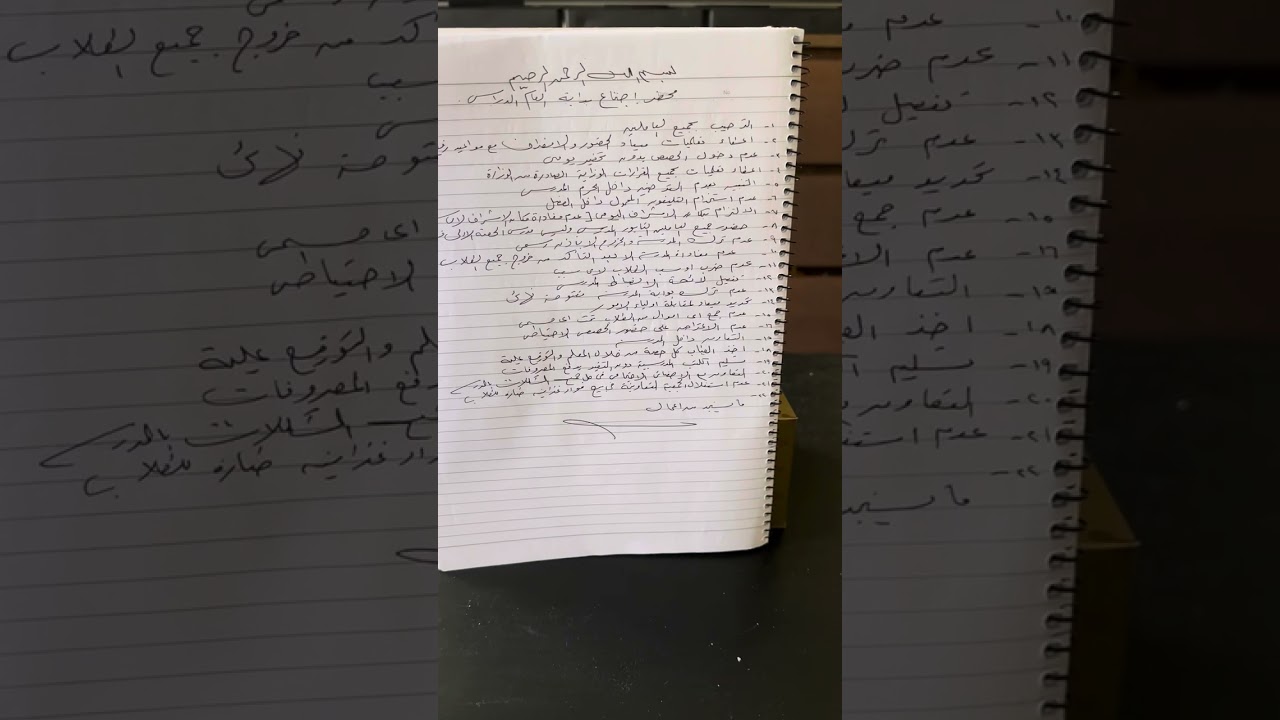 بسم الله الرحمن الرحيم
محضر اجتماع بداية العام الدراسى
١- الترحيب بجميع العاملين
٢- ميعاد الحضور والانصراف مع مواعيد
٣- عدم دخول الحصص بدون تحضير يومى
٤- جميع القرارات الوزارية الصادرة من الوزارة
٥- التنبيه بعدم التدخين داخل الحرم المدرسى
٦- عدم استخدام التليفون المحمول داخل الفصل
٧- الالتزام الاشراف اليومى عدم مغادرة مكان الاشراف لاى
٨- حضور جميع العاملين الطابور المدرسى وليس مدرس الحصة الاولى
٩- عدم ترك المدرسة والخروج الا باذن رسمى
١٠- عدم مغادرة المدرسة الا بعد التأكد من خروج جميع الطلاب
١١- عدم ضرب او سب الطلاب لاى سبب
١٢- تفعيل لائحة الانضباط المدرسى
١٣- عدم ترك بوابة المدرسة مفتوحة نهائى
١٤- تحديد ميعاد لمقابلة اولياء الامور
١٥- عدم جمع اى اموال من الطلاب تحت اى مسمى
١٦- عدم الاعتراض على حضور الحصص الاحتياطى
١٧- التعاون داخل المدرسة
١٨- اخذ الغياب كل حصة من خلال المعلم والتوقيع علية
١٩- تسليم الكتب المدرسية دون التقيد بدفع المصروفات
٢٠- التعاون مع الاخصائى الاجتماعى المشكلات بالمدرسة
٢١- عدم استغلال المقصف مواد غذائية ضاره للطلاب
٢٢- ما يستجد من اعمال